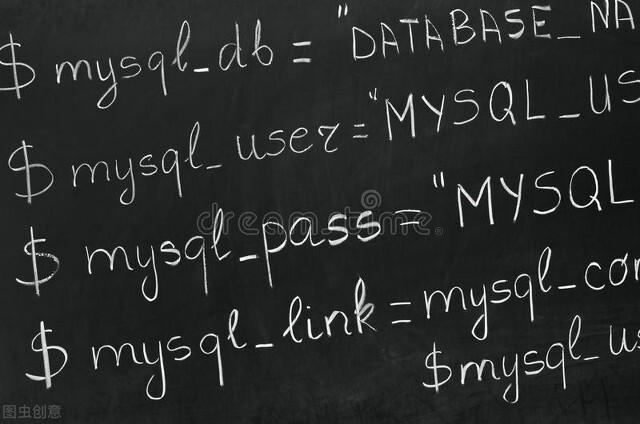 $ mysql_db = "DATABASE_NA
$ mysql_user = "MYSQL_US
$ mysql_pass = "MYSQL
$ mysql_link = mysql_con
$mysql_us
dreamstime.
图虫创意